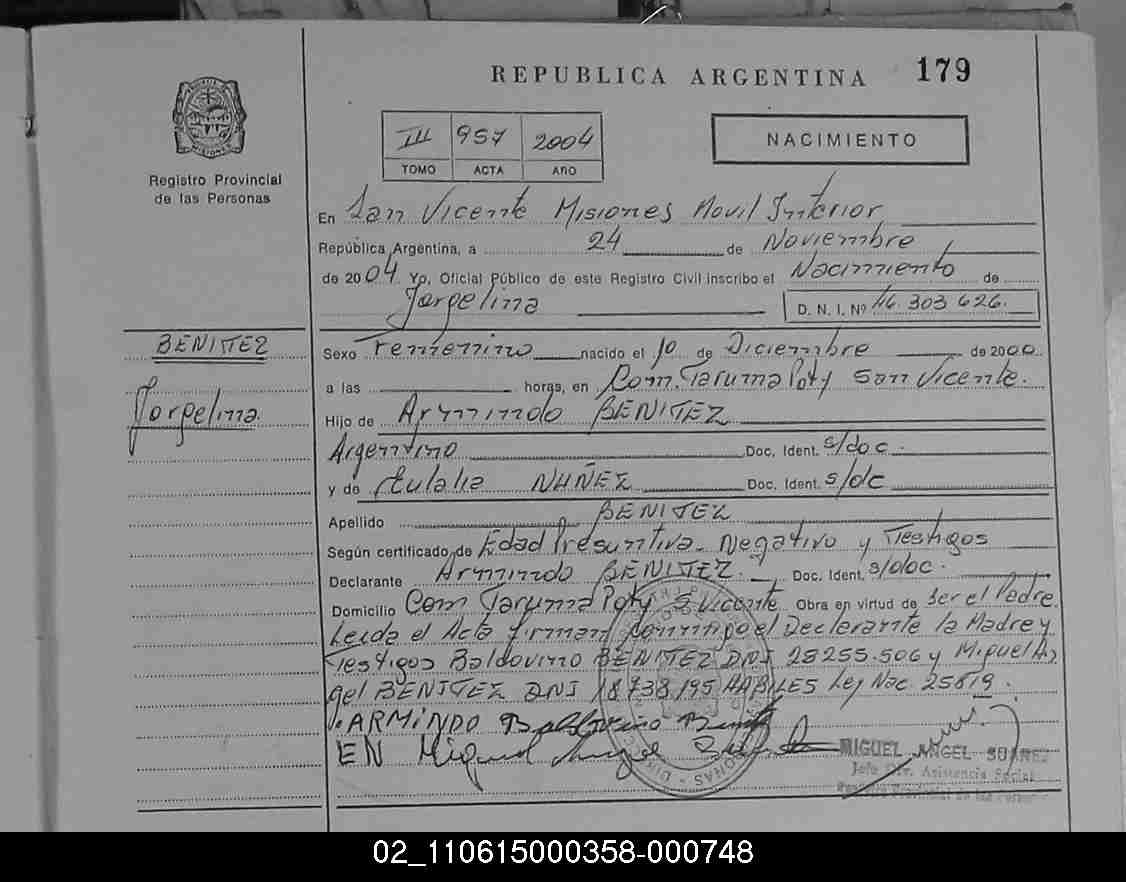 REPUBLICA ARGENTINA 179
III 957 2004
TOMO ACTA AÑO
NACIMIENTO
Registro Provincial
de las Personas
En San Vicente Misiones Movil Interior
República Argentina, a 24 de Noviembre
de 2004 Yo, Oficial Público de este Registro Civil inscribo el Nacimiento de
Jorgelina D. N. I. Nº 46.303.626.
BENITEZ
Jorgelina
Sexo Femenino nacido el 10 de Diciembre de 2000
a las horas, en Com. Taruma Poty San Vicente.
Hijo de Armindo BENITEZ
Argentino Doc. Ident. s/doc.
y de Eulalia NUÑEZ Doc. Ident. s/dc
Apellido BENITEZ
Según certificado de Edad Presuntiva Negativo y Testigos
Declarante Armindo BENITEZ. Doc. Ident. s/doc.
Domicilio Com Taruma Poty S. Vicente Obra en virtud de Ser el Padre.
Leida el Acta firman conmigo el Declarante la Madre y
Testigos Baldovino BENITEZ DNI 28255.506 y Miguel An
gel BENITEZ DNI 18738195 HABILES Ley Nac. 25819.
ARMINDO
EN Miguel
MIGUEL ANGEL SUAREZ
Jefe Div. Asistencia Social
Registro Provincial de las Personas
02_110615000358-000748